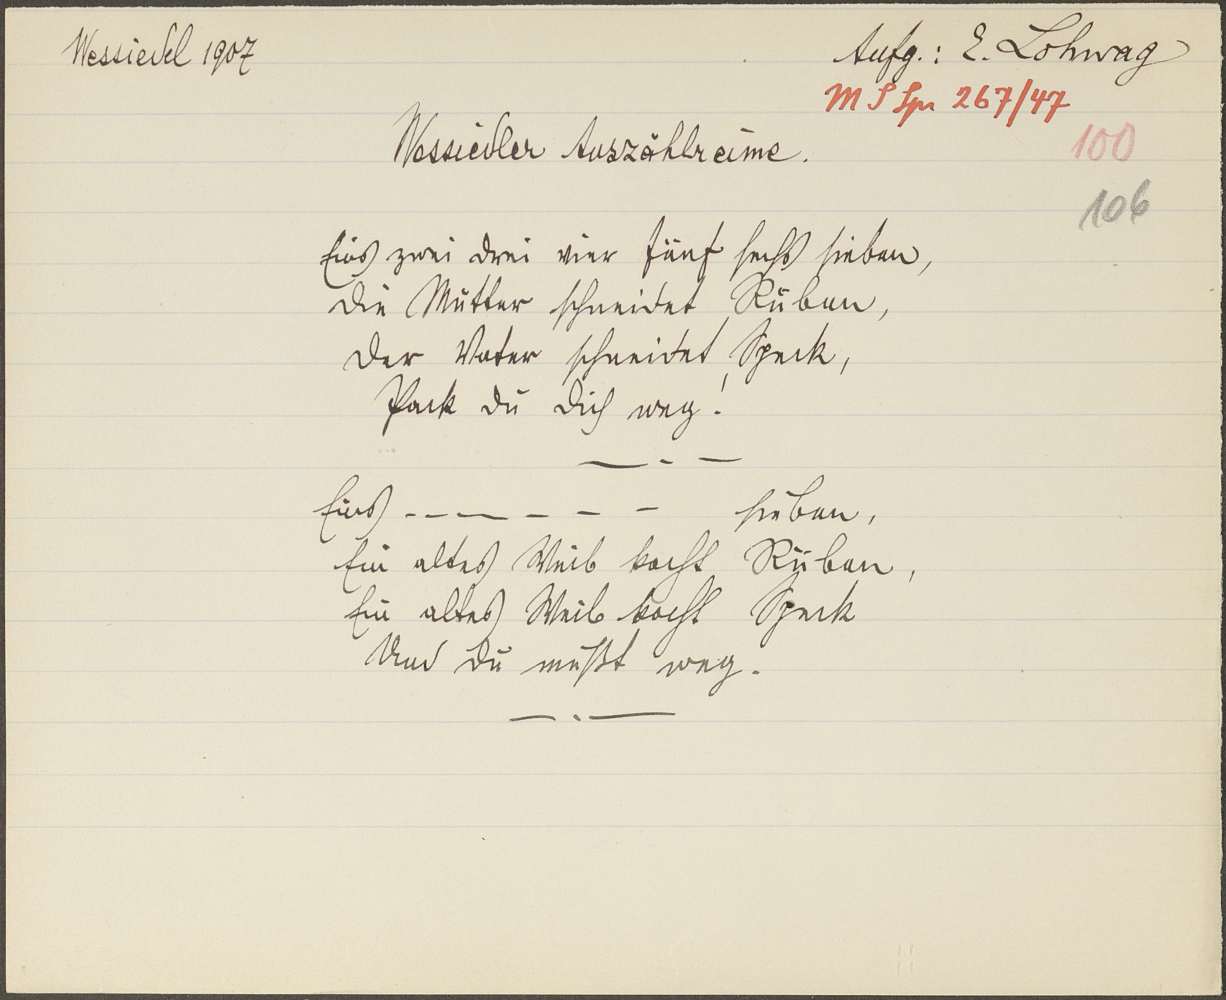 Wessiedel 1907
Aufg.: E. Lohwag
M S Spr 267/47
100
Wessiedler Auszählreime.
106
Eins zwei drei vier fünf sechs sieben,
die Mutter schneidet Rüben,
der Vater schneidet Speck,
Pack du dich weg!
Eins - - - - - - sieben,
Ein altes Weib kocht Rüben,
Ein altes Weib kocht Speck
Und du mußt weg.